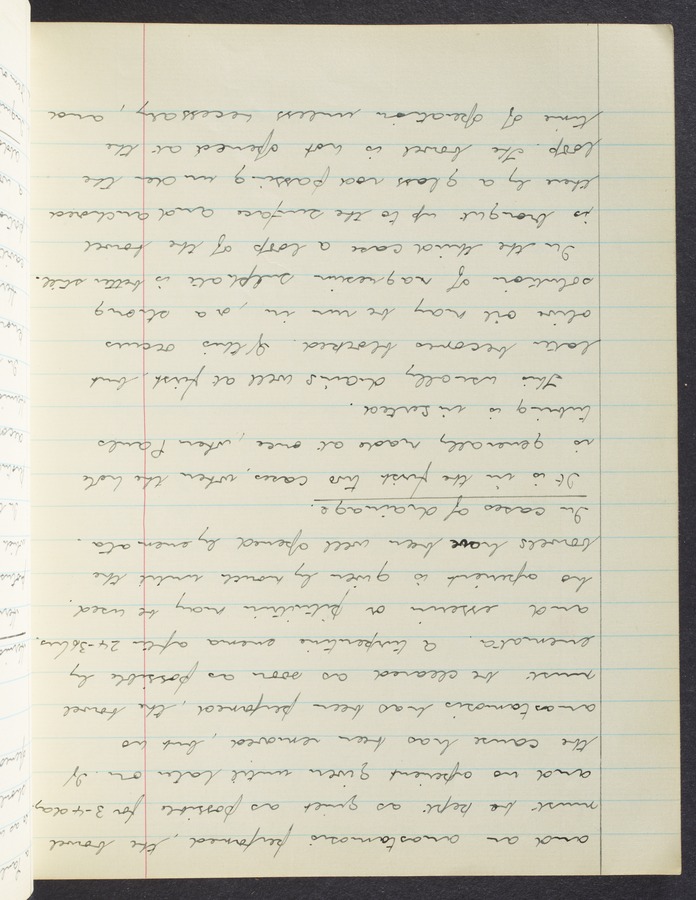 and an anastamosis performed, the bowel
must be kept as quiet as possible for 3-4 days
and no aperient given until later on. If
the cause has been removed, but no
anastamosis has been performed, the bowel
must be cleared as soon as possible by
enemata. A turpentine enema after 24-36 hrs.
and eserin or pituitrin may be used.
No aperient is given by mouth until the
bowels have been well opened by enemata.
In cases of drainage.
It is in the first two cases, when the hole
is generally made at once, when Pauls
tubing is inserted.
This usually drains well at first, but
later becomes blocked. If this occurs
olive oil may be run in, or, a strong
solution of magnesium sulphate is better still.
In the third case a loop of the bowel
is brought up to the surface and anchored
there by a glass rod passing under the
loop. The bowel is not opened at the
time of operation unless necessary, and